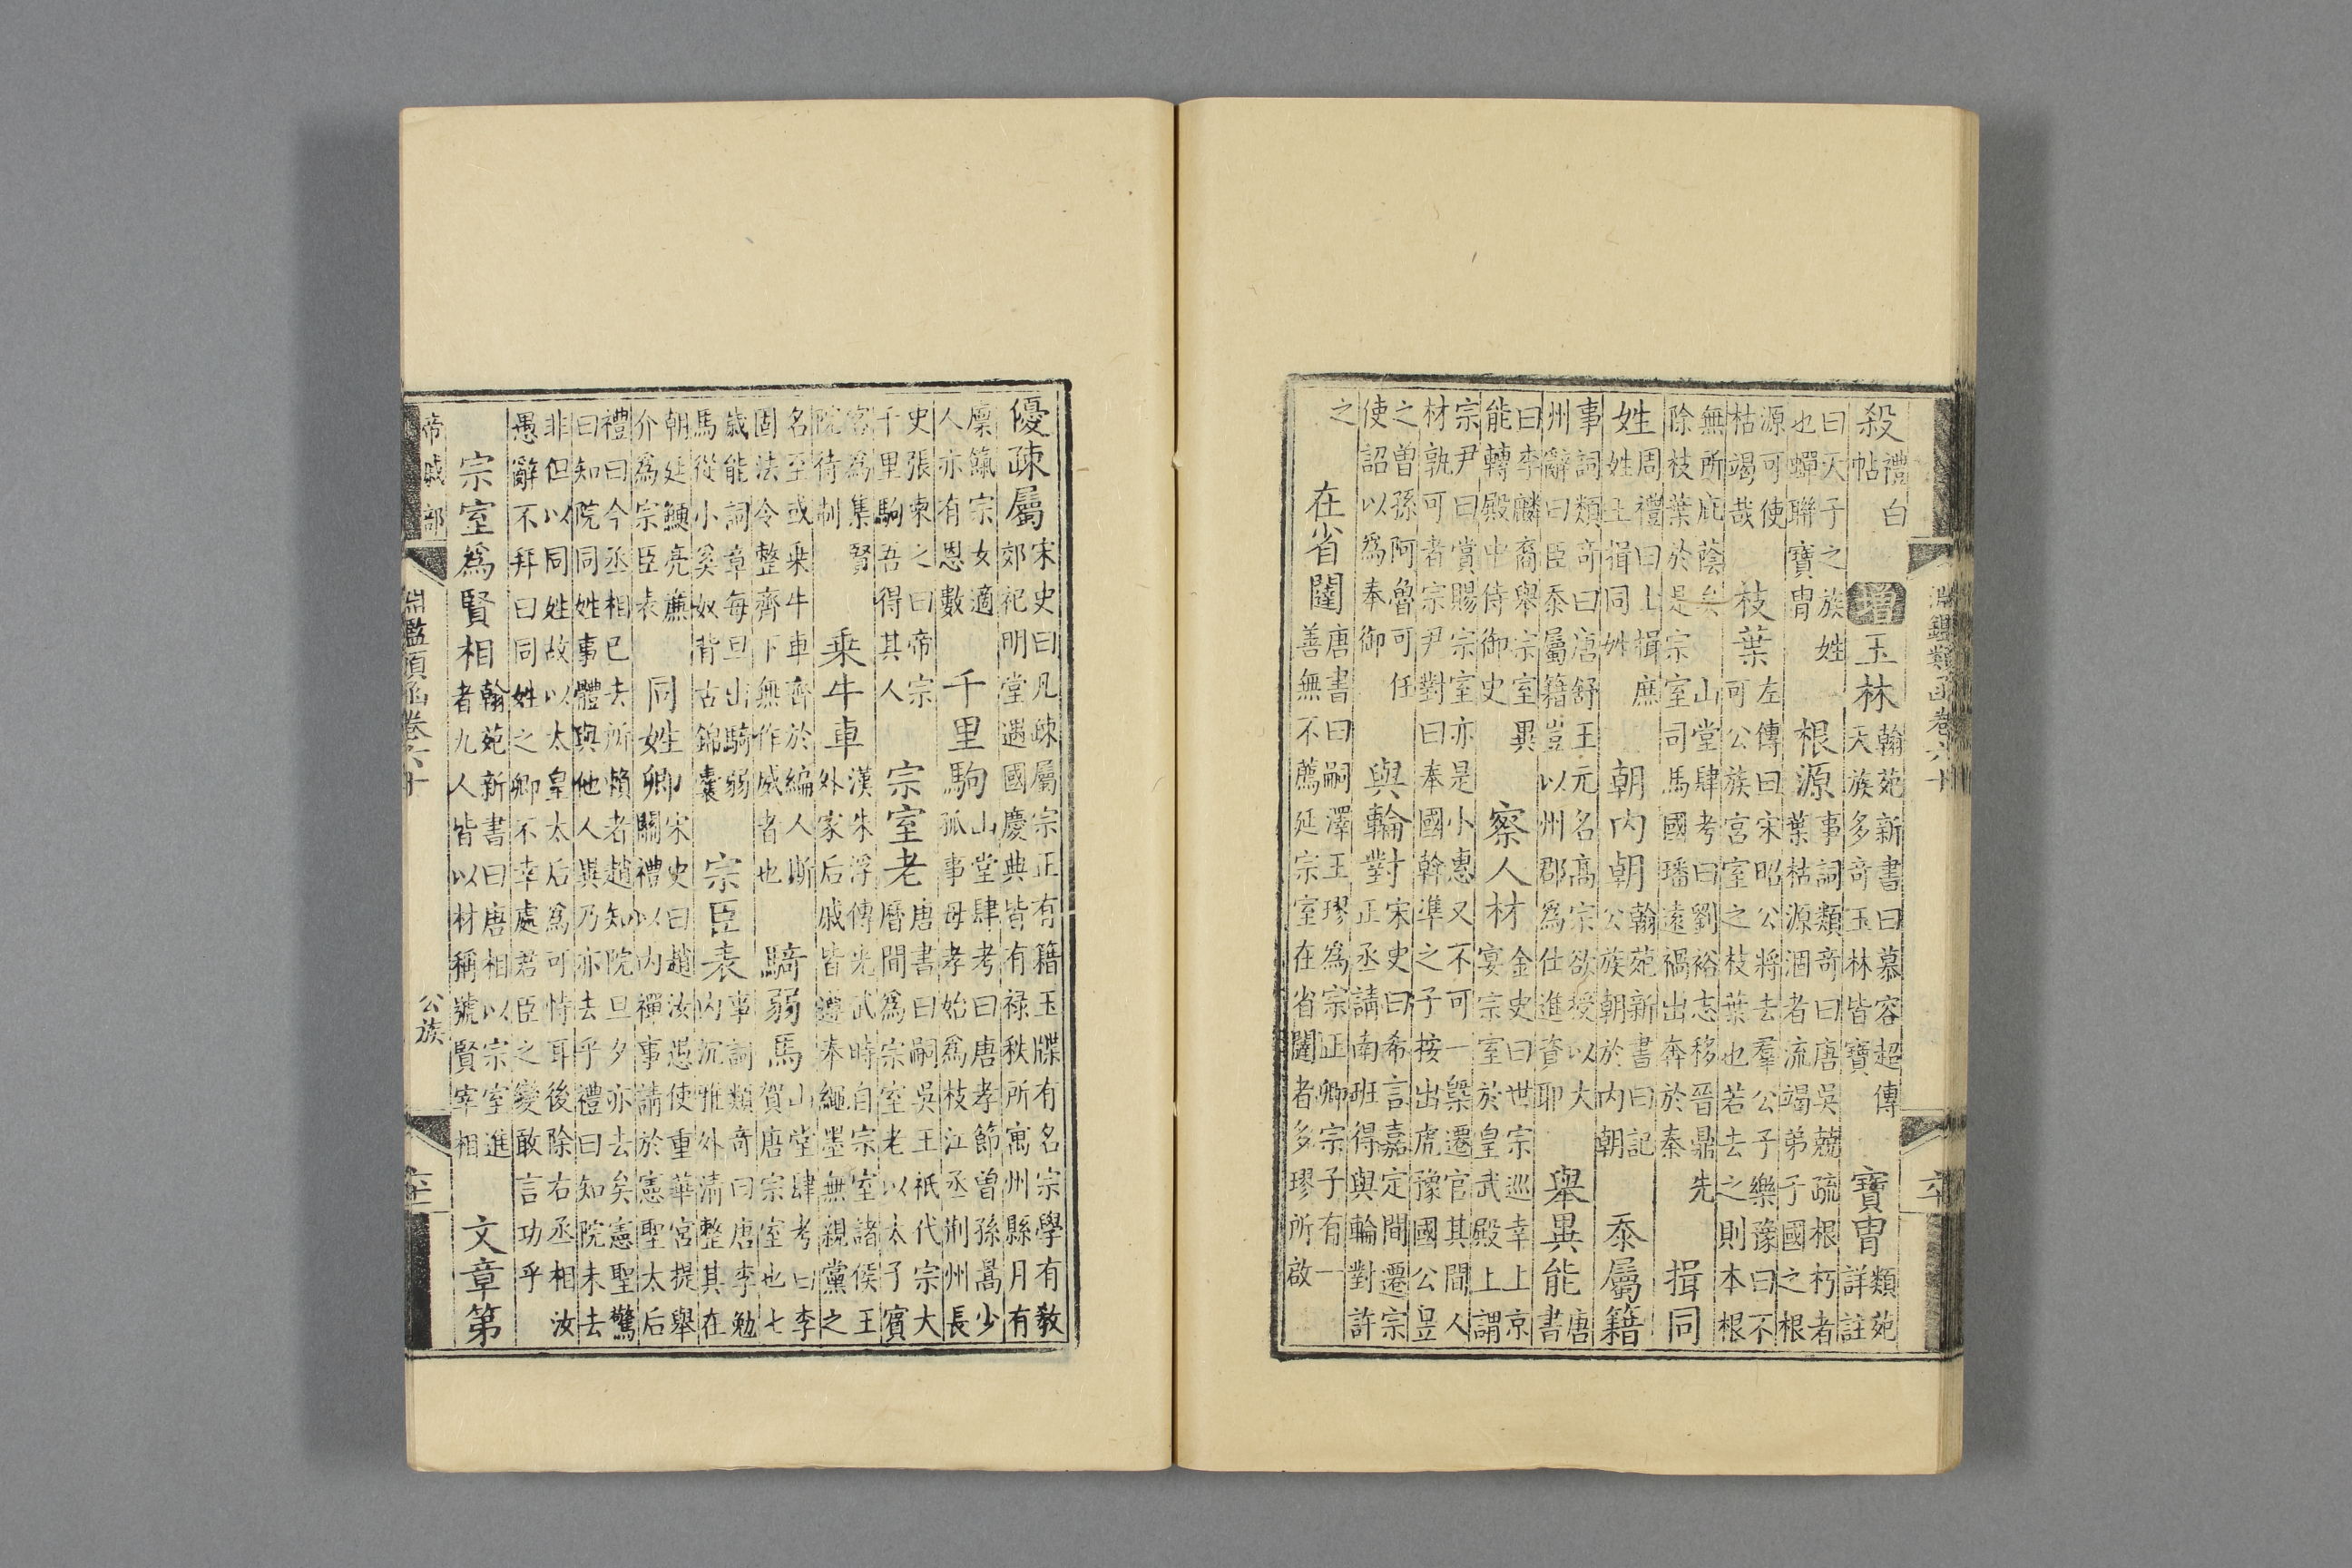 淵鑑類函卷六十
六十
殺禮白帖增玉林翰苑新書曰慕容超傳天族多奇玉林皆寶寶冑類苑詳註
曰天子之族姓也蟬聯寶冑根源事詞類奇曰唐吳兢疏根朽者葉枯源涸者流竭弟子國之根
源可使枯竭哉枝葉左傳曰宋昭公將去羣公子樂豫曰不可公族宮室之枝葉也若去之則本根
無所庇蔭矣山堂肆考曰劉裕志移晉鼎先除枝葉於是宗室司馬國璠遠禍出奔於秦揖同
姓周禮曰上揖庶姓土揖同姓朝內朝翰苑新書曰記公族朝於內朝忝屬籍
事詞類奇曰唐舒王元名高宗欲授以大州辭曰臣忝屬籍豈以州郡為仕進資耶舉異能唐書
曰李麟裔舉宗室異能轉殿中侍御史察人材金史曰世宗巡幸上京宴宗室於皇武殿上謂
宗尹曰賞賜宗室亦是小惠又不可一槩遷官其間人材孰可者宗尹對曰奉國幹準之子按出虎豫國公昱
之曾孫阿魯可任使詔以為奉御與輪對宋史曰希言嘉定間遷宗正丞請南班得與輪對許
之在省闥唐書曰嗣澤王璆為宗正卿宗子有一善無不薦延宗室在省闥者多璆所啟
優疎屬宋史曰凡疎屬宗正有籍玉牒有名宗學有教郊祀明堂遇國慶典皆有祿秩所寓州縣月有
廩餼宗女適人亦有恩數千里駒山堂肆考曰唐孝節曾孫暠少孤事母孝始為枝江丞荊州長
史張柬之曰帝宗千里駒吾得其人宗室老唐書曰嗣吳王祇代宗大曆間為宗室老以太子賓
客為集賢院待制乘牛車漢朱浮傳光武時自宗室諸侯王外家后戚皆遵奉繩墨無親黨之
名至或乘牛車齊於編人斯固法令整齊下無作威者也騎弱馬山堂肆考曰李賀唐宗室也七
歲能詞章每旦出騎弱馬從小奚奴背古錦囊宗臣表事詞類奇曰唐李勉內沉雅外清整其在
朝延鯁亮廉介為宗臣表同姓卿宋史曰趙汝愚使重華宮提舉關禮以內禪事請於憲聖太后
禮曰今丞相已去所賴者趙知院旦夕亦去矣憲聖驚曰知院同姓事體與他人異乃亦去乎禮曰知院未去
非但以同姓故以太皇太后為可恃耳後除右丞相汝愚辭不拜曰同姓之卿不幸處君臣之變敢言功乎
宗室為賢相翰苑新書曰唐相以宗室進者九人皆以材稱號賢宰相文章第
帝戚部
淵鑑類函卷六十
公族
六十一